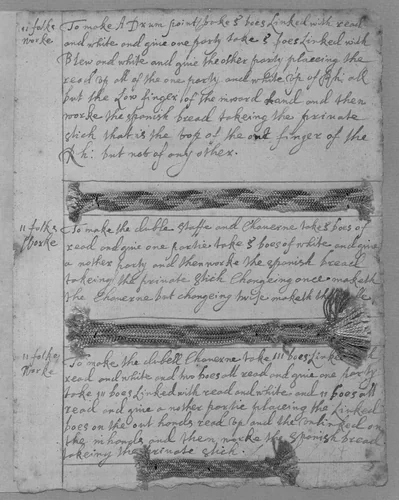 11 folks
worke
To make A Drum point/ take 3 boes Linked with read
and white and give one party take 3 boes Linked with
Blew and white and give the other party placeing the
read up all of the one party and white up of all
but the Low finger of the inward hand and then
worke the spanish bread takeing the private
stich that is the top of the one finger of the
Rh: but not of any other.
11 folks
worke
To make the duble Staffe and Cheverne take 3 boes of
read and give one partie take 3 boes of white and give
a nother party and then worke the spanish bread
takeing the private stich Changeing once maketh
the Cheverne but changeing twise maketh the
11 folkes
worke
To make the dubell Cheverne take 111 boes Linked
read and white and two boes all read and give one party
take 111 boes Linked with read and white and 11 boes all
read and give a nother partie placeing the Linked
boes on the out hands read up and the unlinked on
the in hands and then worke the spanish bread
takeing the private stich.